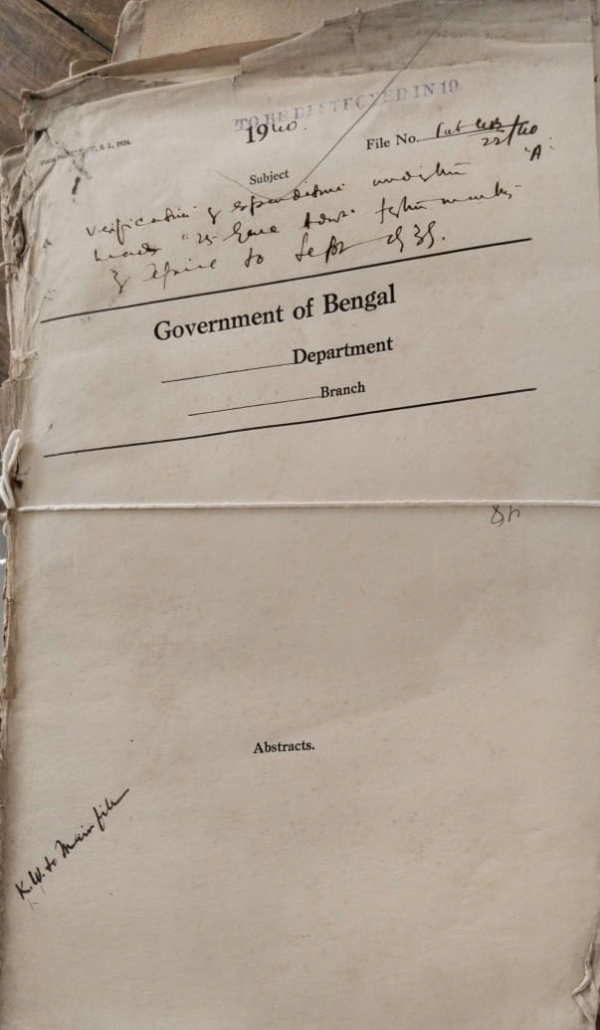 TO BE DESTROYED IN 19
1940.
File No.
22/40
'A'
Subject
Verification of expenditure under the
heads "25- Gene Admn" for the months
of April to Sept 1939.
Government of Bengal
Department
Branch
Abstracts.
K.W. to Main file